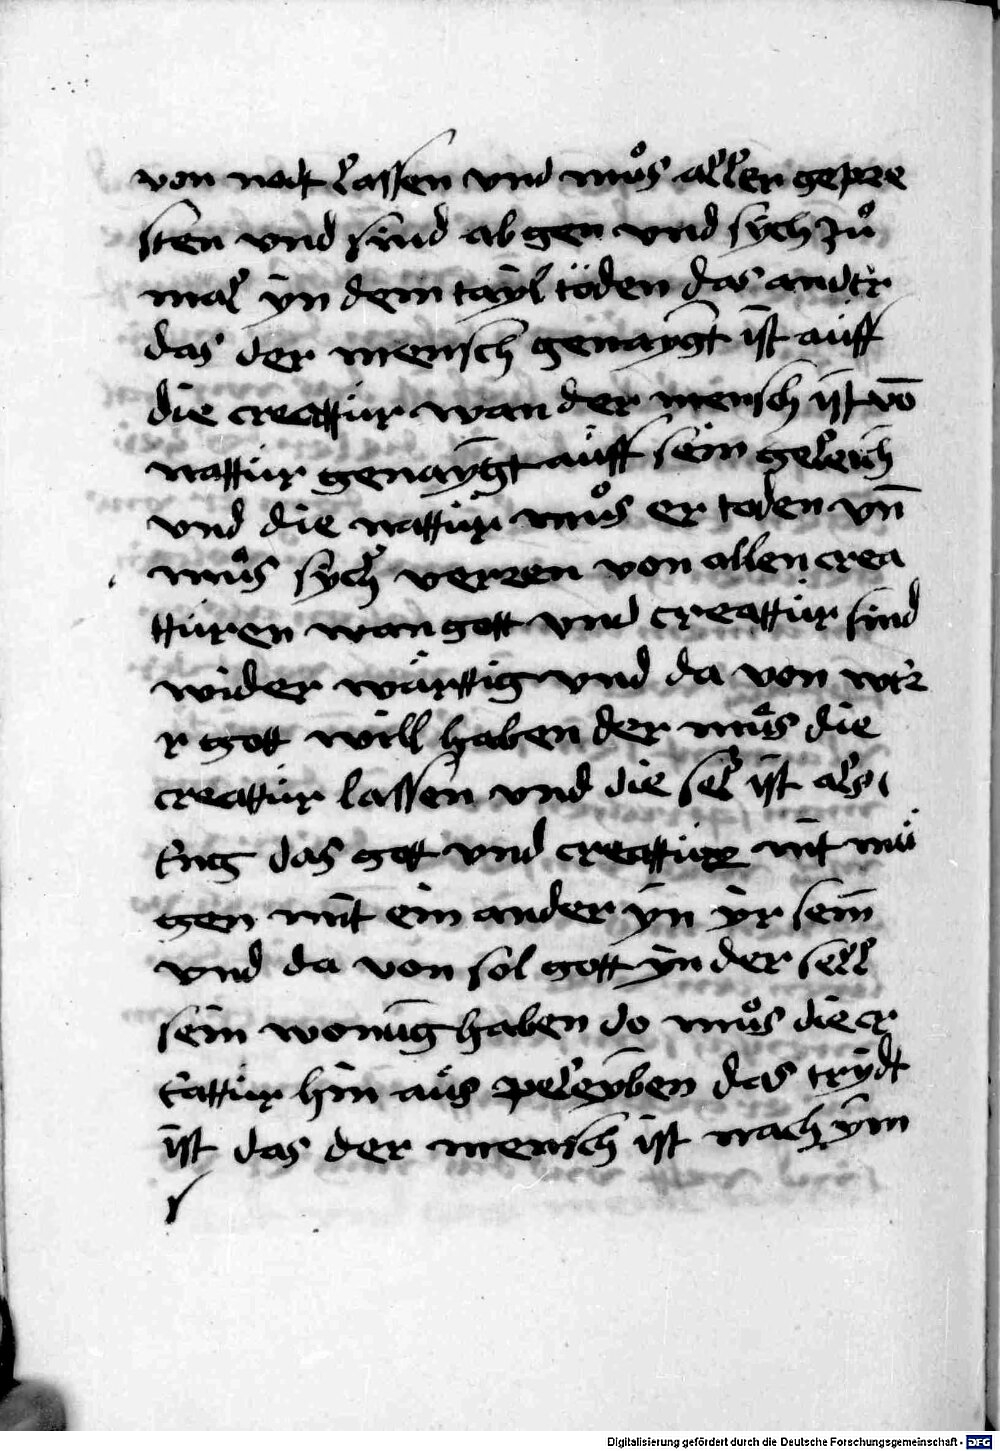 von nicht lassen vnd muͦs aller gepre
sten vnd sünd ab gen vnd sych zuͦ
mal yn dem tayl töden das ander
das der mensch genaygt ist auff
die creattur wan der mensch ist vō
nattur genaygt auff sein geleich
vnd die nattur muͦs er toden vn̄
muͦs sych verren von allen crea
tturen wan gott vnd creattur sind
wider wärttig vnd da von we
r gott will haben der muͦs die
creattur lassen vnd die sel ist als
Eng das gott vnd creattur nit mü
gen mit ein ander yn yr sein
vnd da von sol gott yn der sell
sein wonūg haben do muͦs die cr
Eattur hin aus peleyben das trydt
ist das der mensch ist nach ym
Digitalisierung gefördert durch die Deutsche Forschungsgemeinschaft - DFG